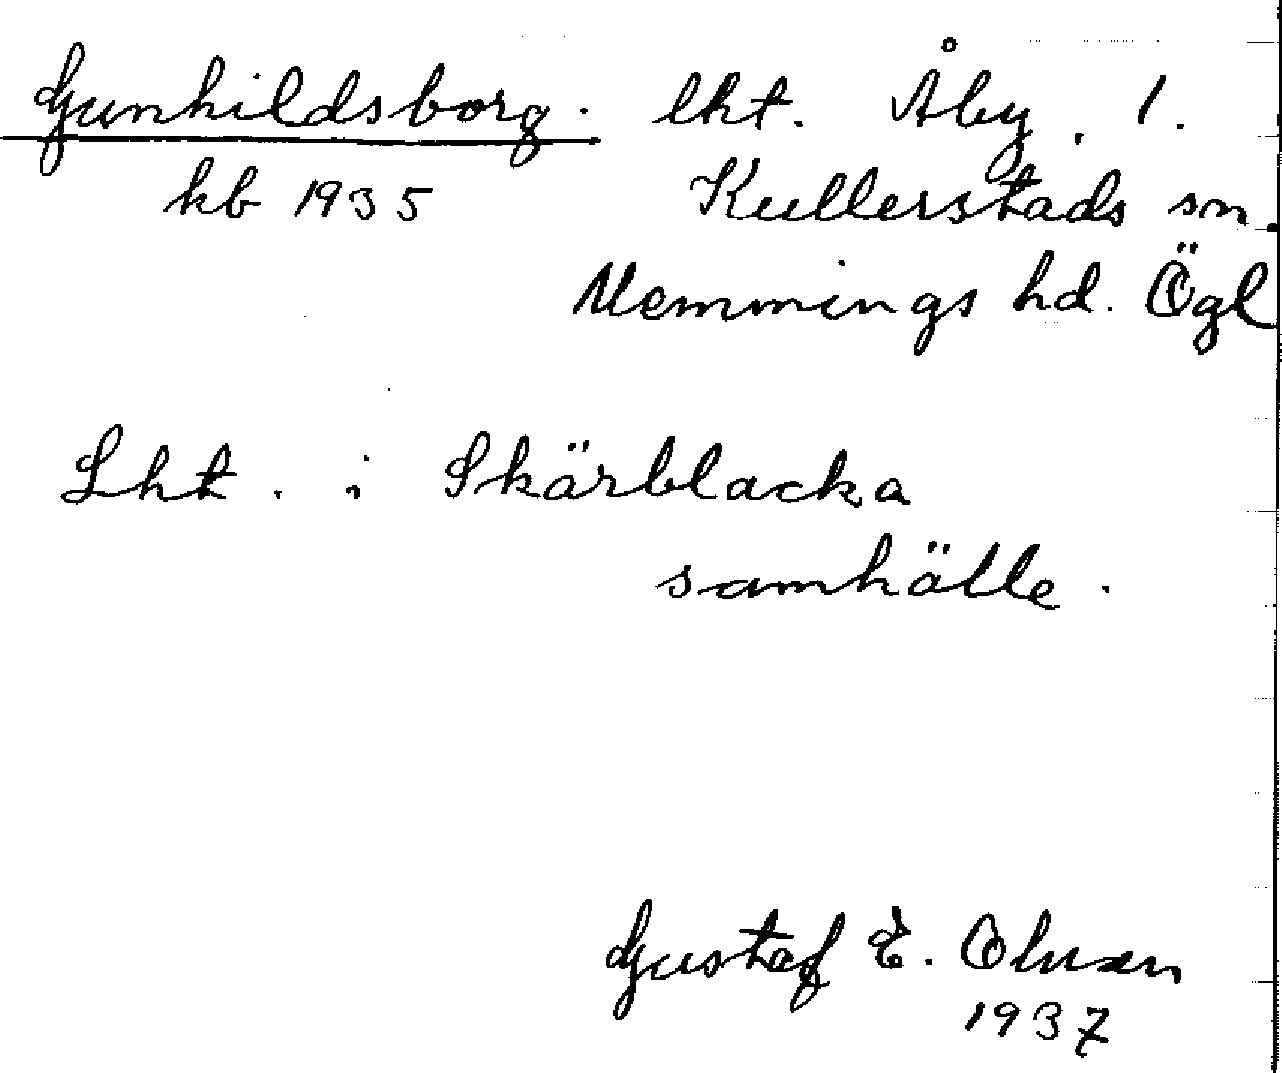 Gunhildsborg. lht. Åby. 1.
kb 1935 Kullerstads sn
Memmings hd. Ögl
Lht. i Skärblacka
samhälle.
Gustaf E. Olsson
1937